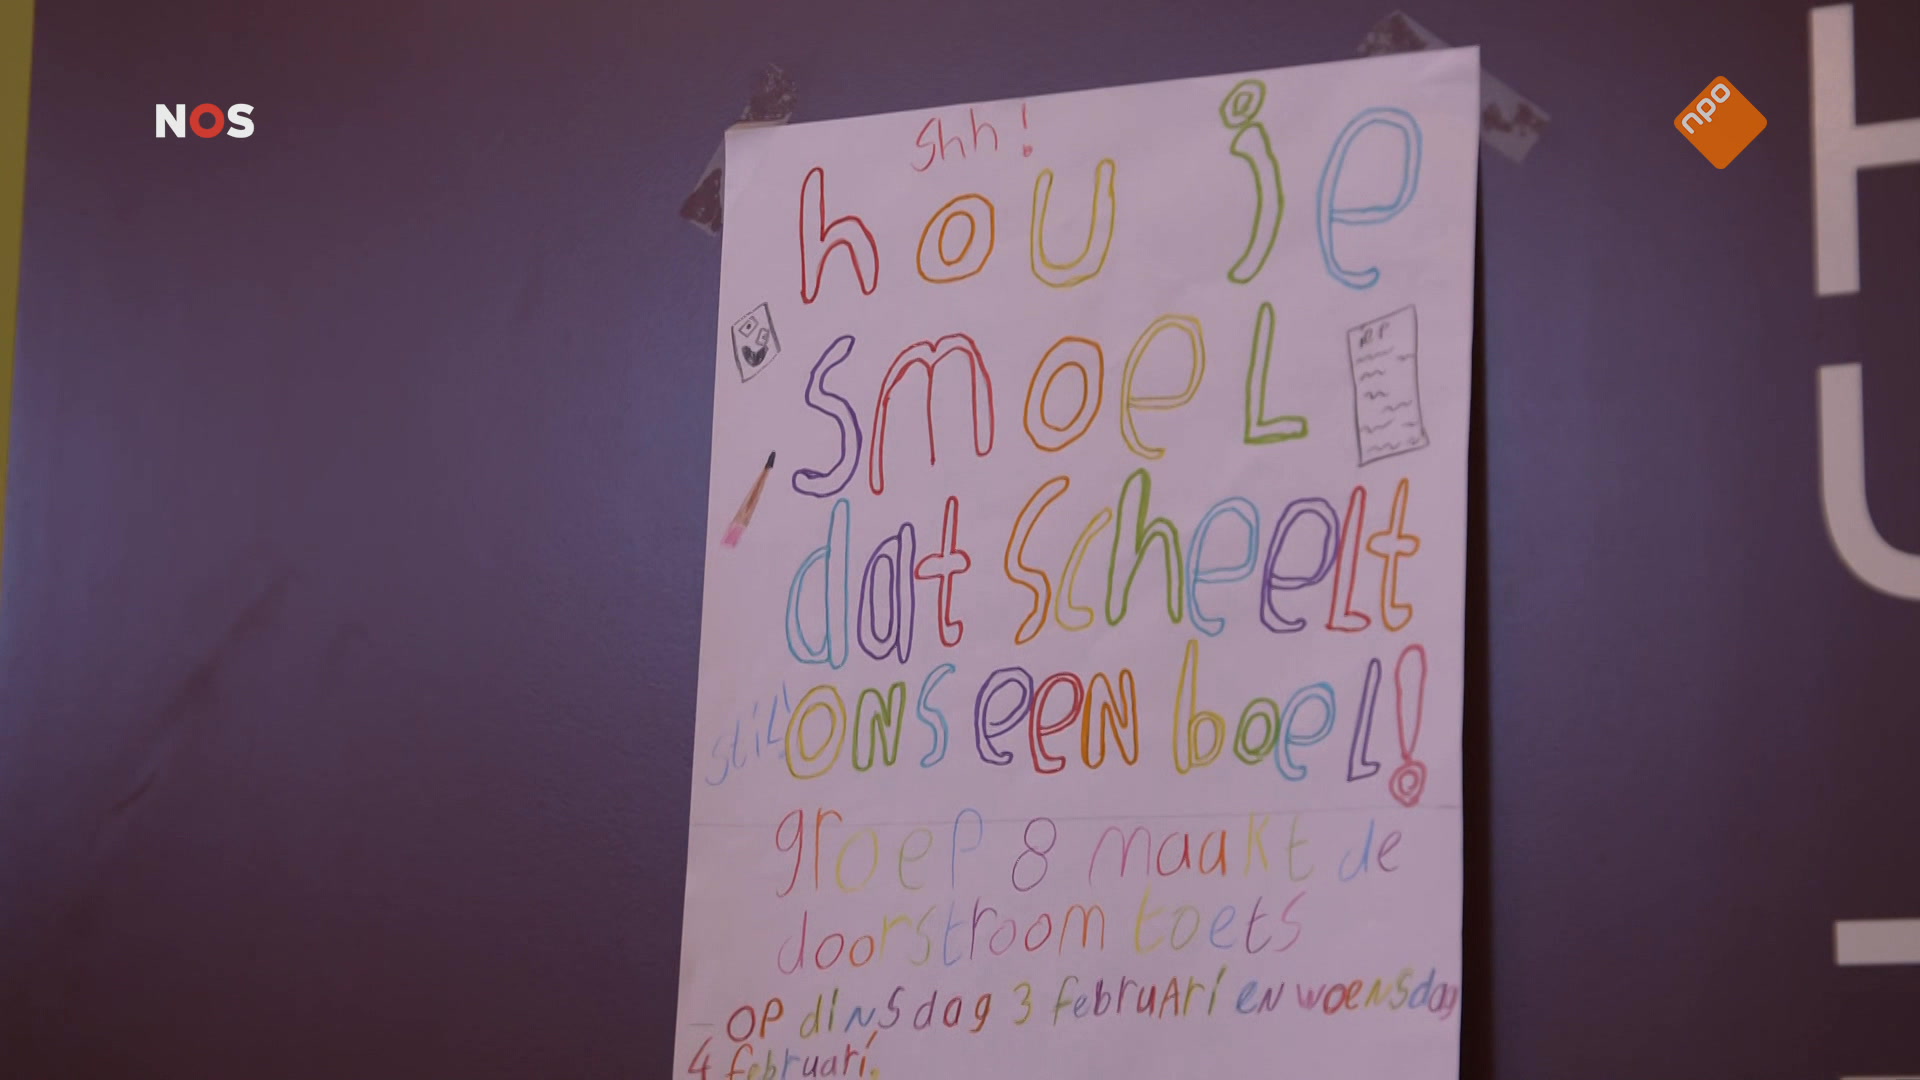 NOS
npo
shh!
hou je
smoel
dat scheelt
stil!
ons een boel!
groep 8 maakt de
doorstroom toets
op dinsdag 3 februari en woensdag
4 februari.